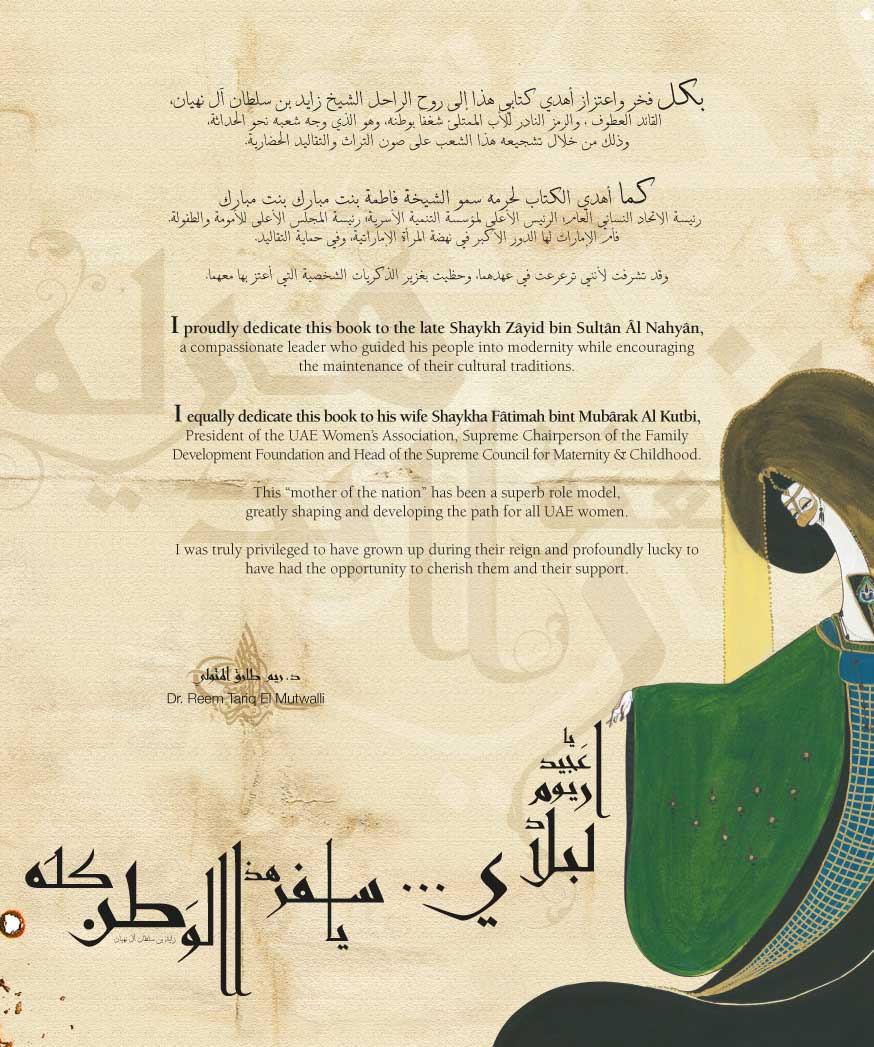 بكل فخر واعتزاز أهدي كتابي هذا إلى روح الراحل الشيخ زايد بن سلطان آل نهيان،
القائد العطوف، والرمز النادر للأب الممتلئ شغفاً بوطنه، وهو الذي وجه شعبه نحو الحداثة،
وذلك من خلال تشجيعه هذا الشعب على صون التراث والتقاليد الحضارية.
كما أهدي الكتاب لحرمه سمو الشيخة فاطمة بنت مبارك بنت مبارك
رئيسة الاتحاد النسائي العام؛ الرئيس الأعلى لمؤسسة التنمية الأسرية؛ رئيسة المجلس الأعلى للأمومة والطفولة.
فأم الإمارات لها الدور الأكبر في نهضة المرأة الإماراتية، وفي حماية التقاليد.
وقد تشرفت لأنني ترعرعت في عهدهما، وحظيت بغزير الذكريات الشخصية التي أعتز بها معهما.
I proudly dedicate this book to the late Shaykh Zâyid bin Sultân Âl Nahyân,
a compassionate leader who guided his people into modernity while encouraging
the maintenance of their cultural traditions.
I equally dedicate this book to his wife Shaykha Fâtimah bint Mubârak Al Kutbi,
President of the UAE Women's Association, Supreme Chairperson of the Family
Development Foundation and Head of the Supreme Council for Maternity & Childhood.
This “mother of the nation” has been a superb role model,
greatly shaping and developing the path for all UAE women.
I was truly privileged to have grown up during their reign and profoundly lucky to
have had the opportunity to cherish them and their support.
د. ريم طارق المتولي
Dr. Reem Tariq El Mutwalli
يا
عَجيد
اريوم
لبلادي ... يا سافر هذا الوَطن كلَه
زايد بن سلطان آل نهيان